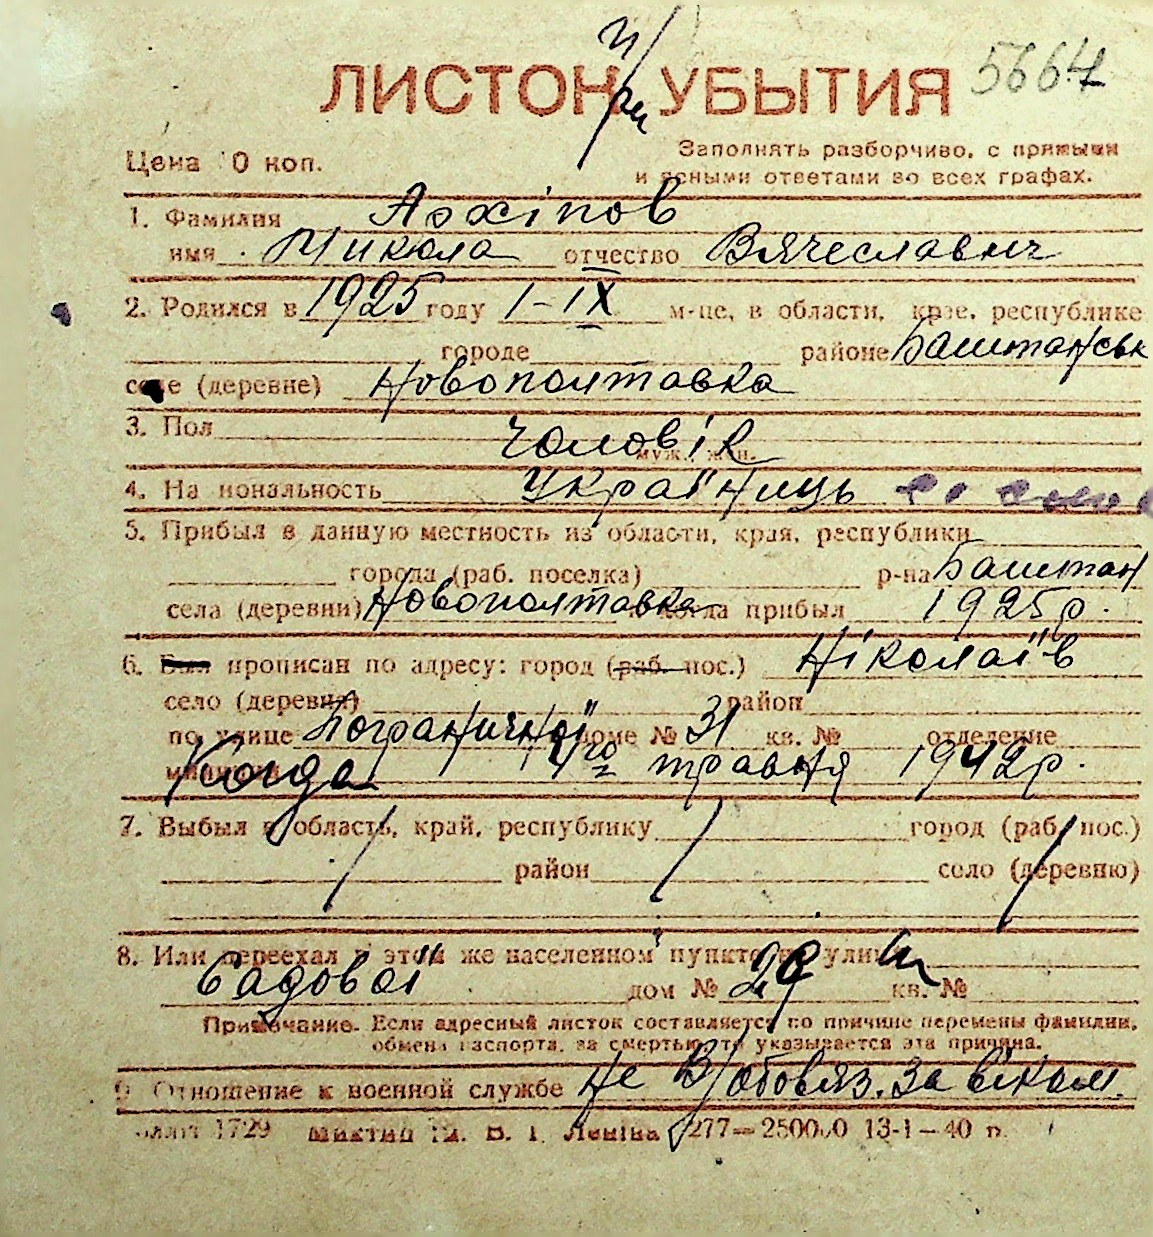 ЛИСТОК УБЫТИЯ 5664
Цена 10 коп. Заполнять разборчиво, с прямыми
и ясными ответами во всех графах.
1. Фамилия Архіпов
имя Микола отчество Вячеславич
2. Родился в 1925 году 1-IX м-це, в области, крае, республике
городе районе Баштанськ
селе (деревне) Новополтавка
3. Пол Чоловік
муж., жен.
4. Национальность Українець
5. Прибыл в данную местность из области, края, республики
города (раб. поселка) р-на Баштан
села (деревни) Новополтавка когда прибыл 1925 р.
6. Был прописан по адресу: город (раб. пос.) Ніколаїв
село (деревня) район
по улице Пограничної доме № 31 кв. № отделение
милиции Когда 14го травня 1942 р.
7. Выбыл в область, край, республику город (раб. пос.)
район село (деревню)
8. Или переехал в этом же населенном пункте на улицу
Садової дом № 29 кв. №
Примечание. Если адресный листок составляется по причине перемены фамилии,
обмена паспорта, за смертью, то указывается эта причина.
9. Отношение к военной службе не В/обовяз. за віком.
1729 Ленина 277—250000 13-1-40 р.